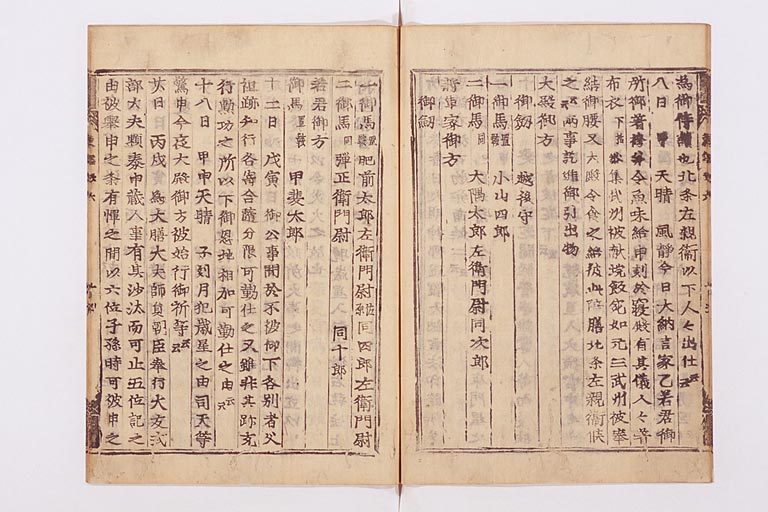 為御傅讀也北条左親衛以下人々出仕云云
八日 甲 天晴 風静今日大納言家乙若君御
所御着袴令魚味給申刻於寝殿有其儀人々着
布衣下 集武州被献垸飯宛如元三武州被奉
結御腰又大殿令食之給彼此陪膳北条左親衛候
之云云両事訖進御引出物
大殿御方
御釼 越後守
一御馬置鞍 小山四郎
二御馬同 大隅太郎左衛門尉同次郎
将軍家御方
御釼
一御馬置鞍 肥前太郎左衛門尉 同四郎左衛門尉
二御馬同 弾正左衛門尉 同十郎
若君御方
御馬置鞍 甲斐太郎
十二日 戊寅 御公事間於不被仰下各別者父
祖跡知行各寄合随分限可勤仕之又雖非其跡充
行勲功之所以下御恩地相加可勤仕之由云云
十八日 甲申天晴 子刻月犯歳星之由司天等
驚申今夜大殿御方被始行御祈等云云
廿日 丙戌 為大膳大夫師員朝臣奉行大友式
部大夫頻泰申蔵人事有其沙汰而可止五位記之
由被挙申之条有憚之間以六位子孫時可被申之